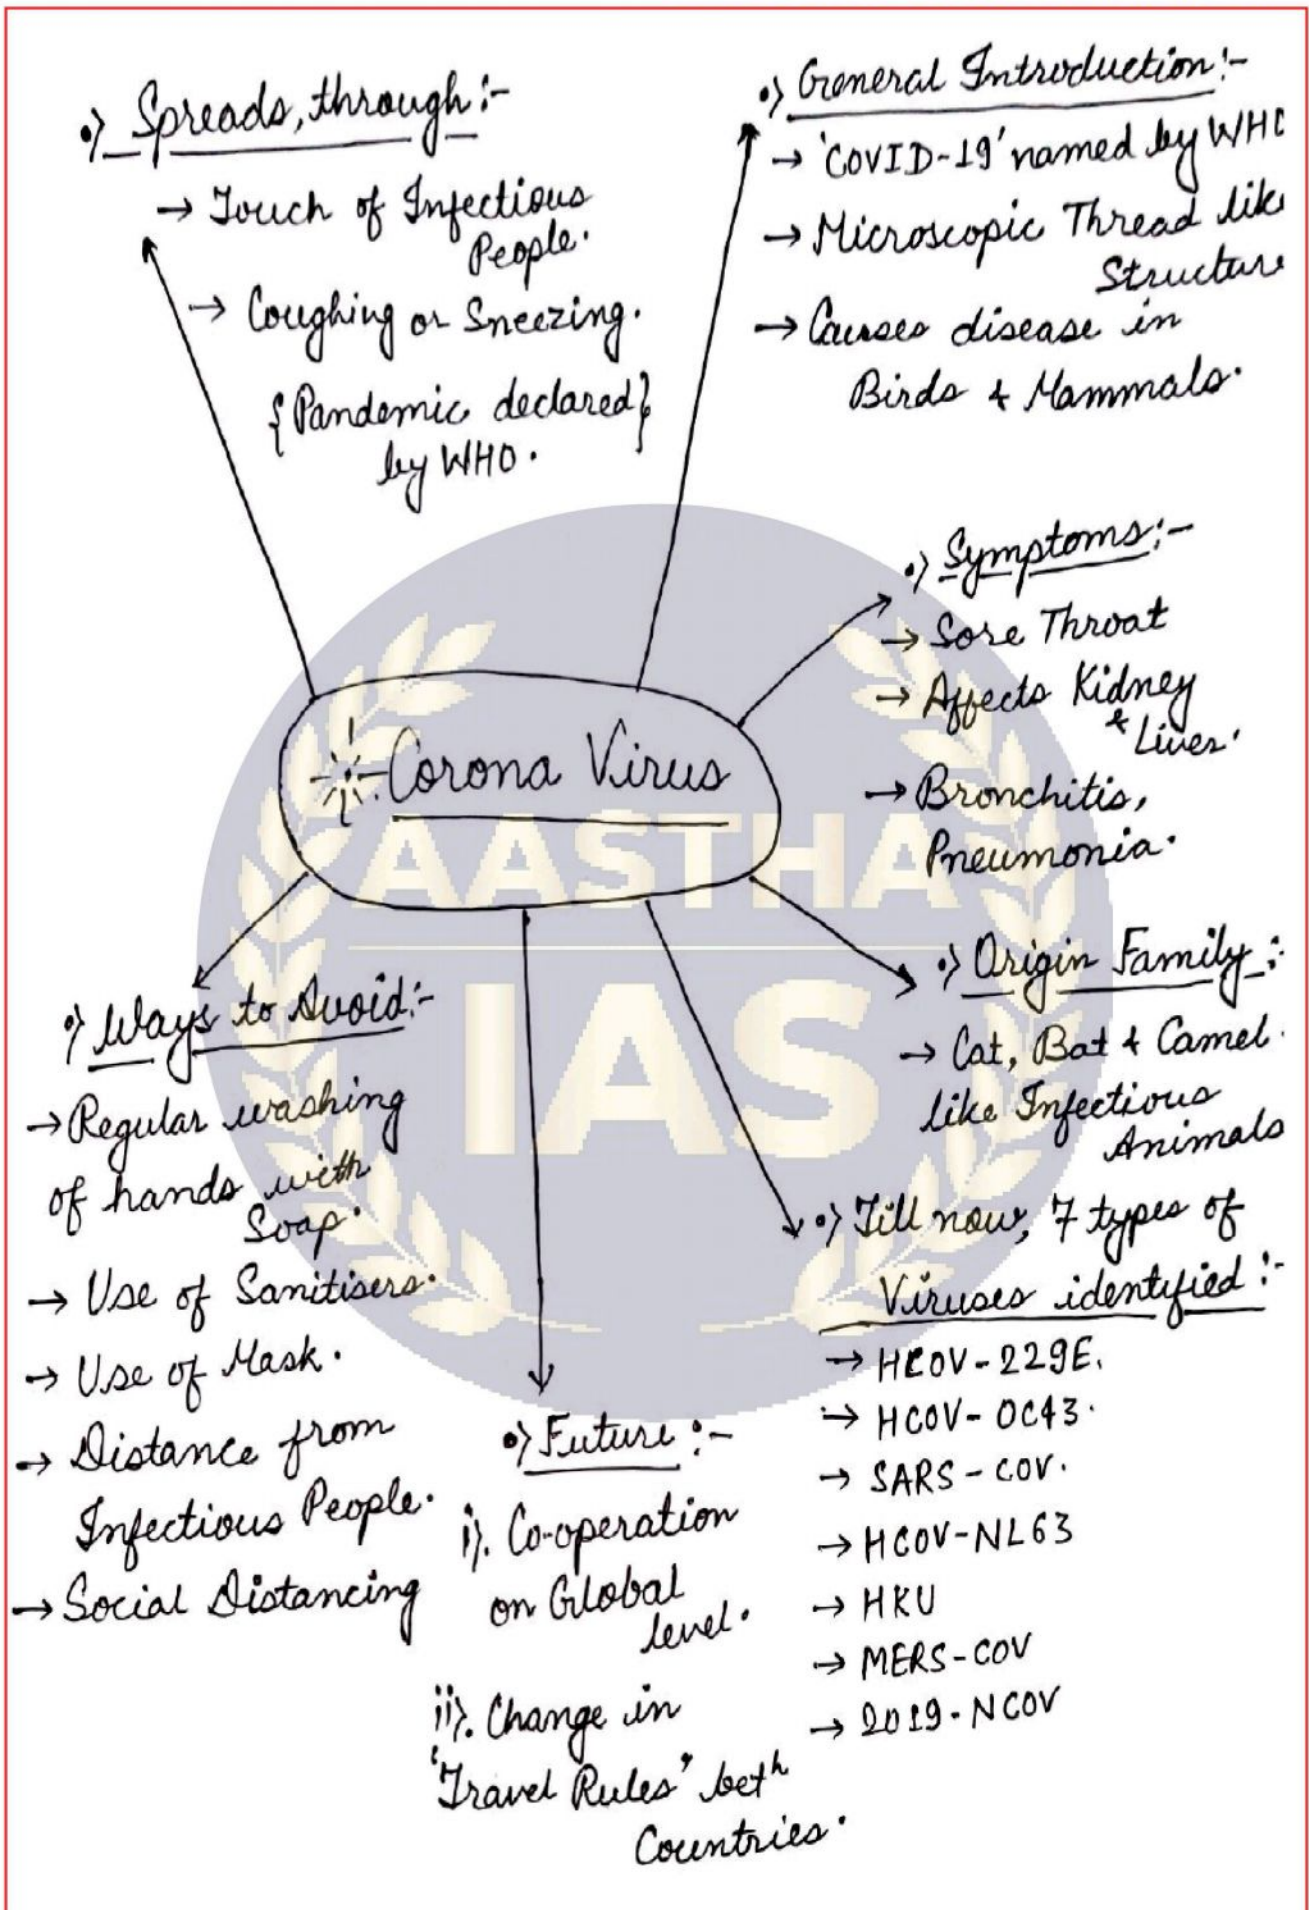 •) Spreads, through :-
→ Touch of Infectious
People.
→ Coughing or Sneezing.
{Pandemic declared}
by WHO.
•) General Introduction :-
→ 'COVID-19' named by WHO
→ Microscopic Thread like
Structure
→ Causes disease in
Birds & Mammals.
•) Symptoms :-
→ Sore Throat
→ Affects Kidney
& Liver.
→ Bronchitis,
Pneumonia.
Corona Virus
AASTHA
IAS
•) Origin Family :-
→ Cat, Bat & Camel
like Infectious
Animals
•) Till now, 7 types of
Viruses identified :-
→ HCOV-229E.
→ HCOV-OC43.
→ SARS-COV.
→ HCOV-NL63
→ HKU
→ MERS-COV
→ 2019-NCOV
•) Ways to Avoid :-
→ Regular washing
of hands with
Soap.
→ Use of Sanitisers.
→ Use of Mask.
→ Distance from
Infectious People.
→ Social Distancing
•) Future :-
i). Co-operation
on Global
level.
ii). Change in
'Travel Rules' betn
Countries.